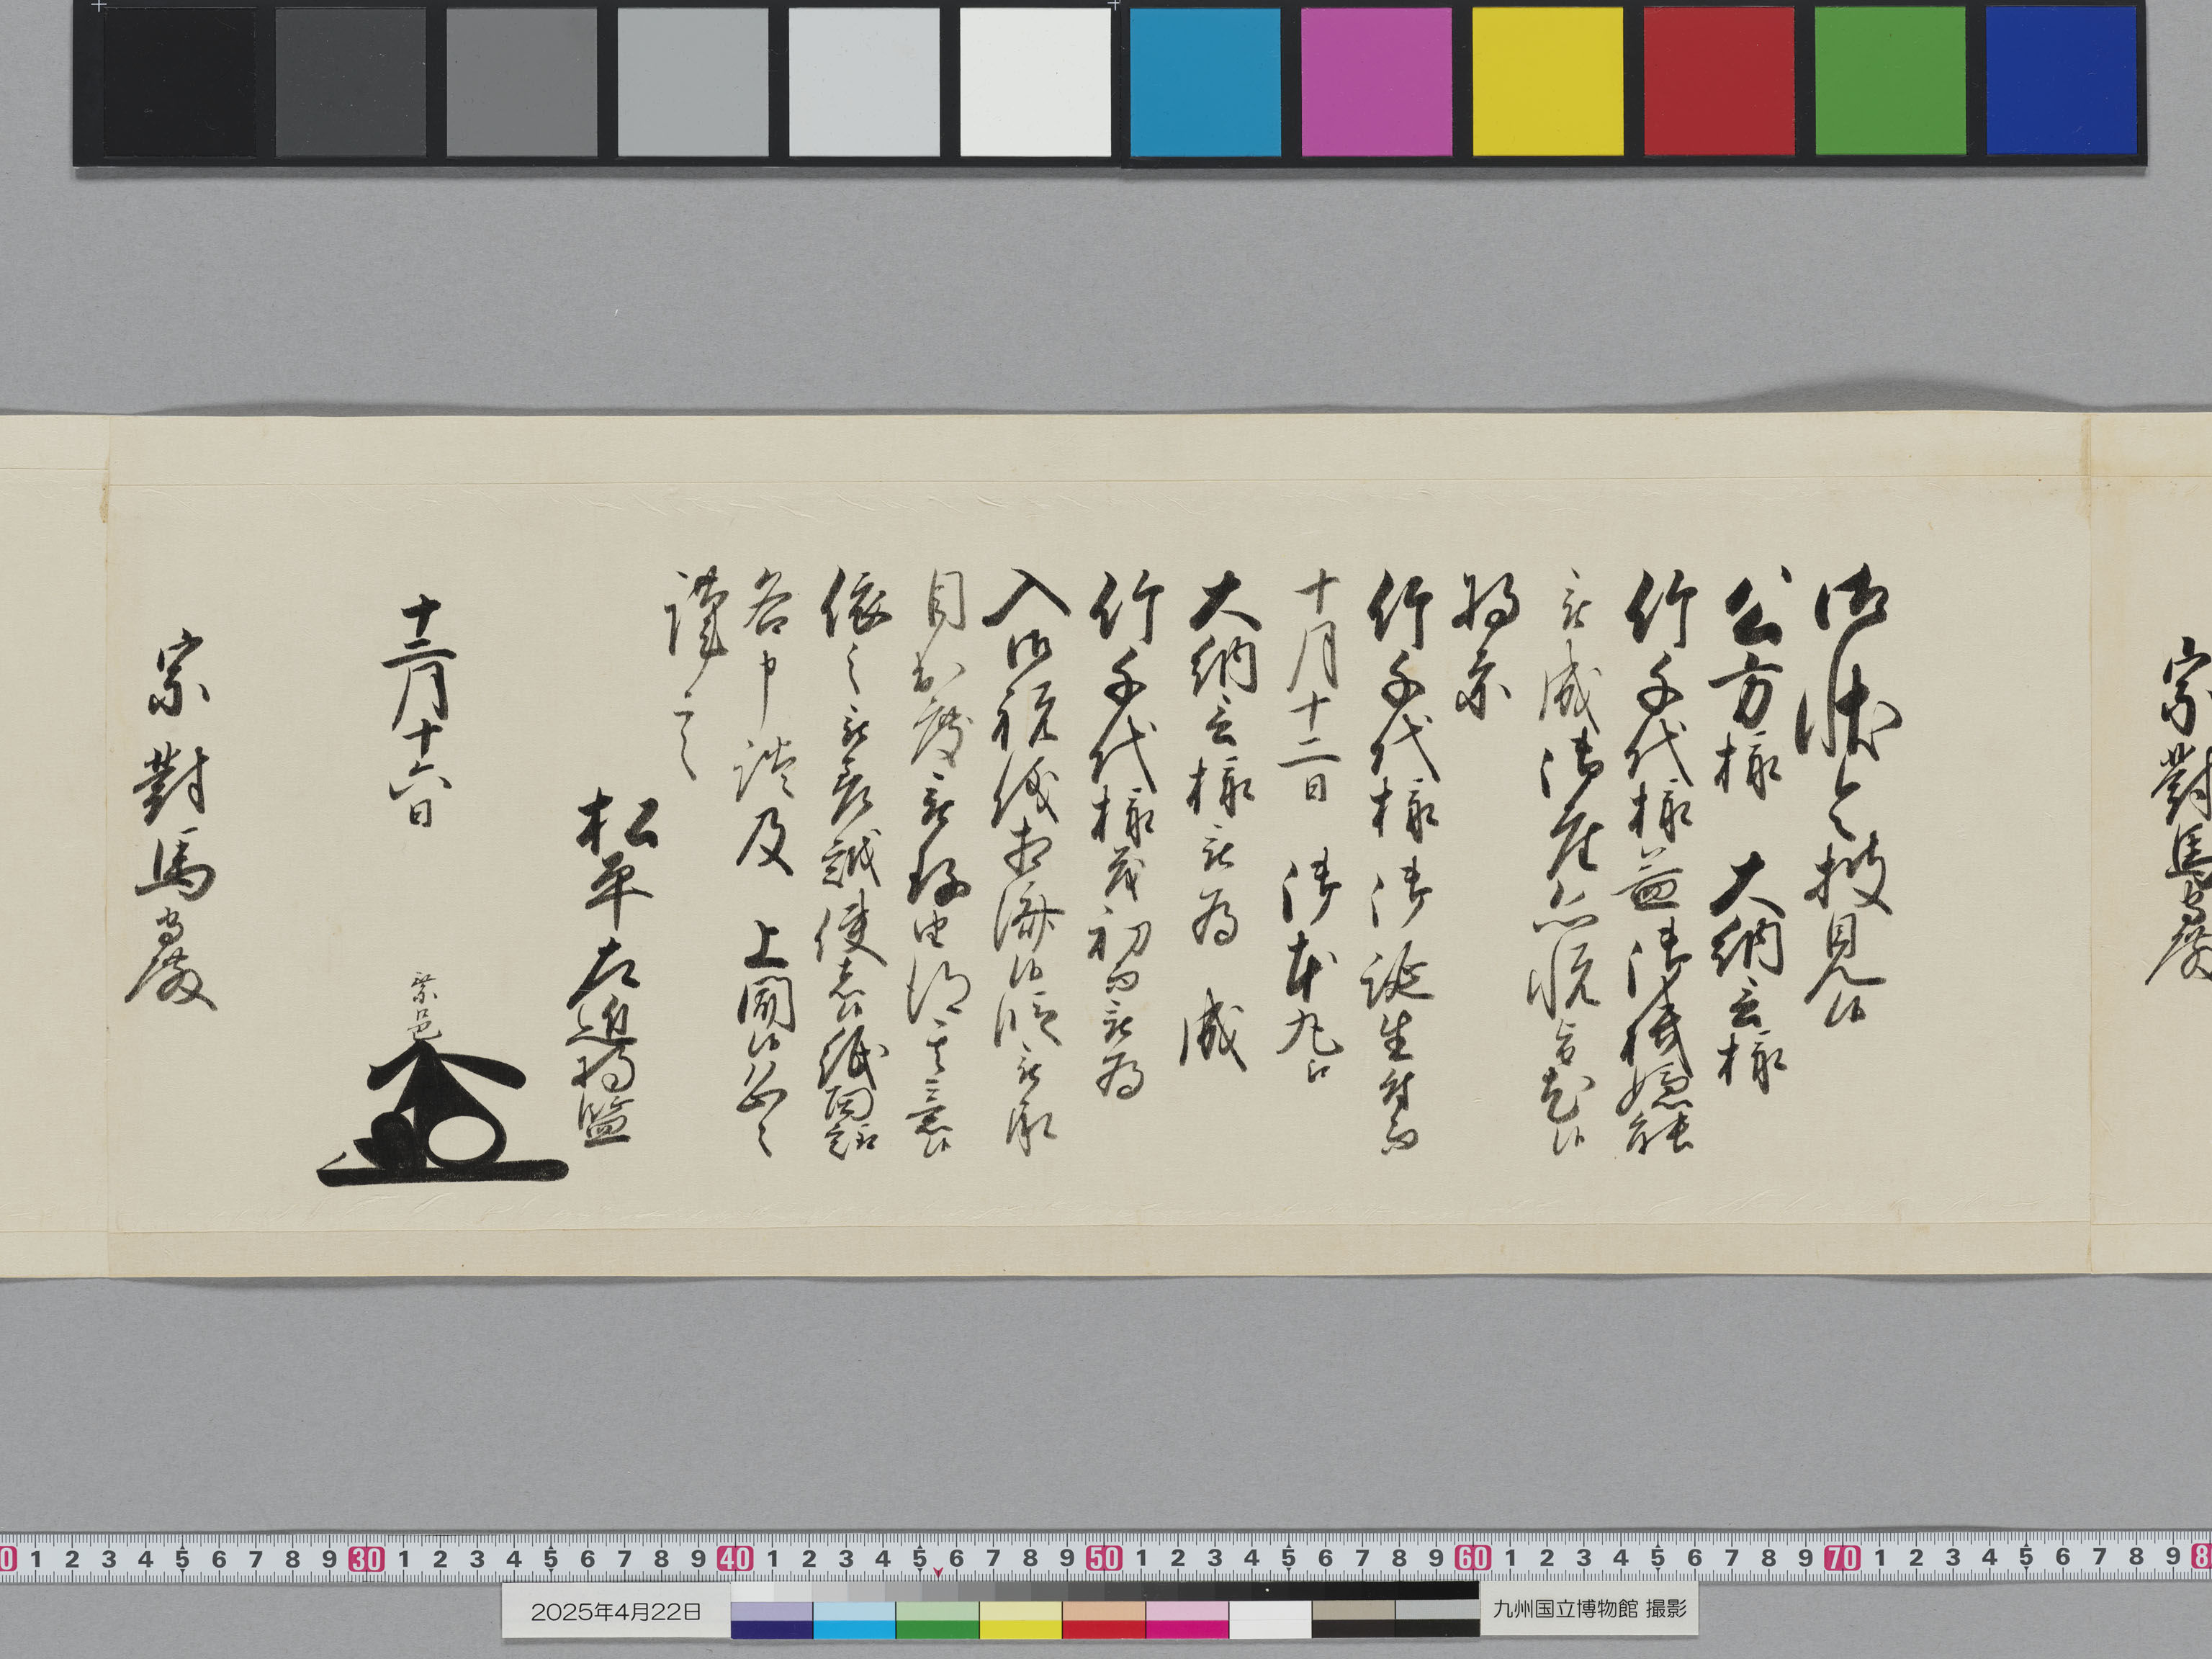 御状令披見候
公方様 大納言様
竹千代様益御機嫌能
被成御座恐悦旨尤候
将亦
竹千代様御誕生付而
十月十二日 御本丸江
大納言様被為 成
竹千代様茂初而被為
入御祝儀相済候段被承
目出度被存由得其意候
依之被差誠使者候紙面趣
各申談及 上聞候 恐々
謹言
松平右近将監
十二月十六日
武邑
宗對馬守殿
宗對馬守殿
2025年4月22日
九州国立博物館 撮影
0 1 2 3 4 5 6 7 8 9 30 1 2 3 4 5 6 7 8 9 40 1 2 3 4 5 6 7 8 9 50 1 2 3 4 5 6 7 8 9 60 1 2 3 4 5 6 7 8 9 70 1 2 3 4 5 6 7 8 9